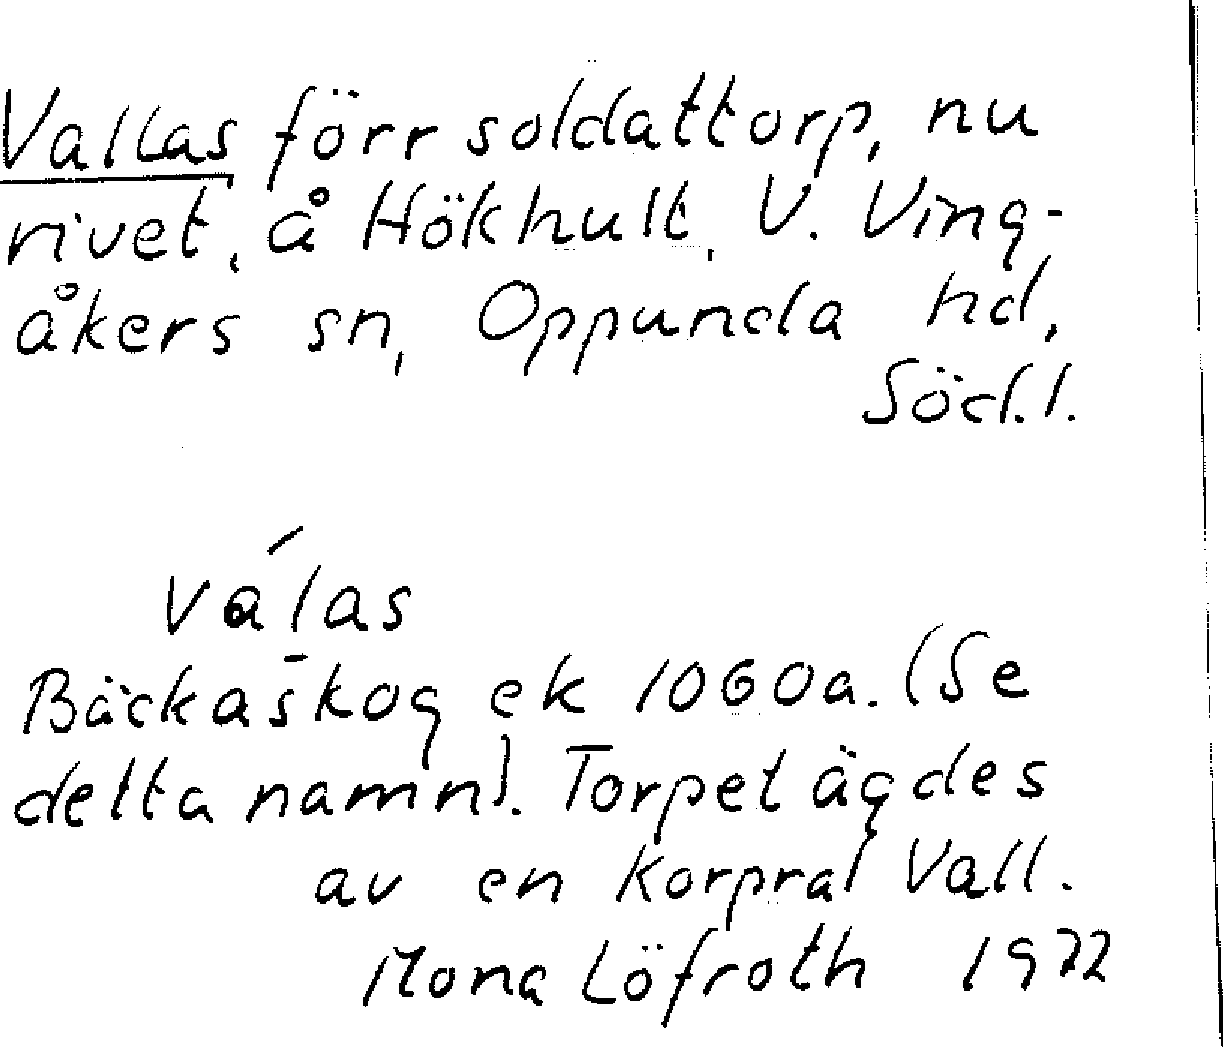 Vallas förr soldattorp, nu
rivet, å Hökhult, V. Ving-
åkers sn, Oppunda hd,
Söd.l.
válas
Bäckaskog ek 1060a. (Se
detta namn). Torpet ägdes
av en korpral Vall.
Mona Löfroth 1972